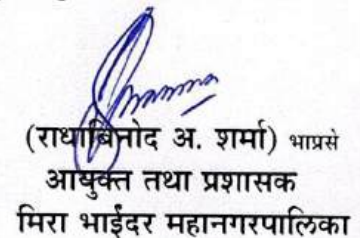 (राधाबिनोद अ. शर्मा) भाप्रसे
आयुक्त तथा प्रशासक
मिरा भाईंदर महानगरपालिका